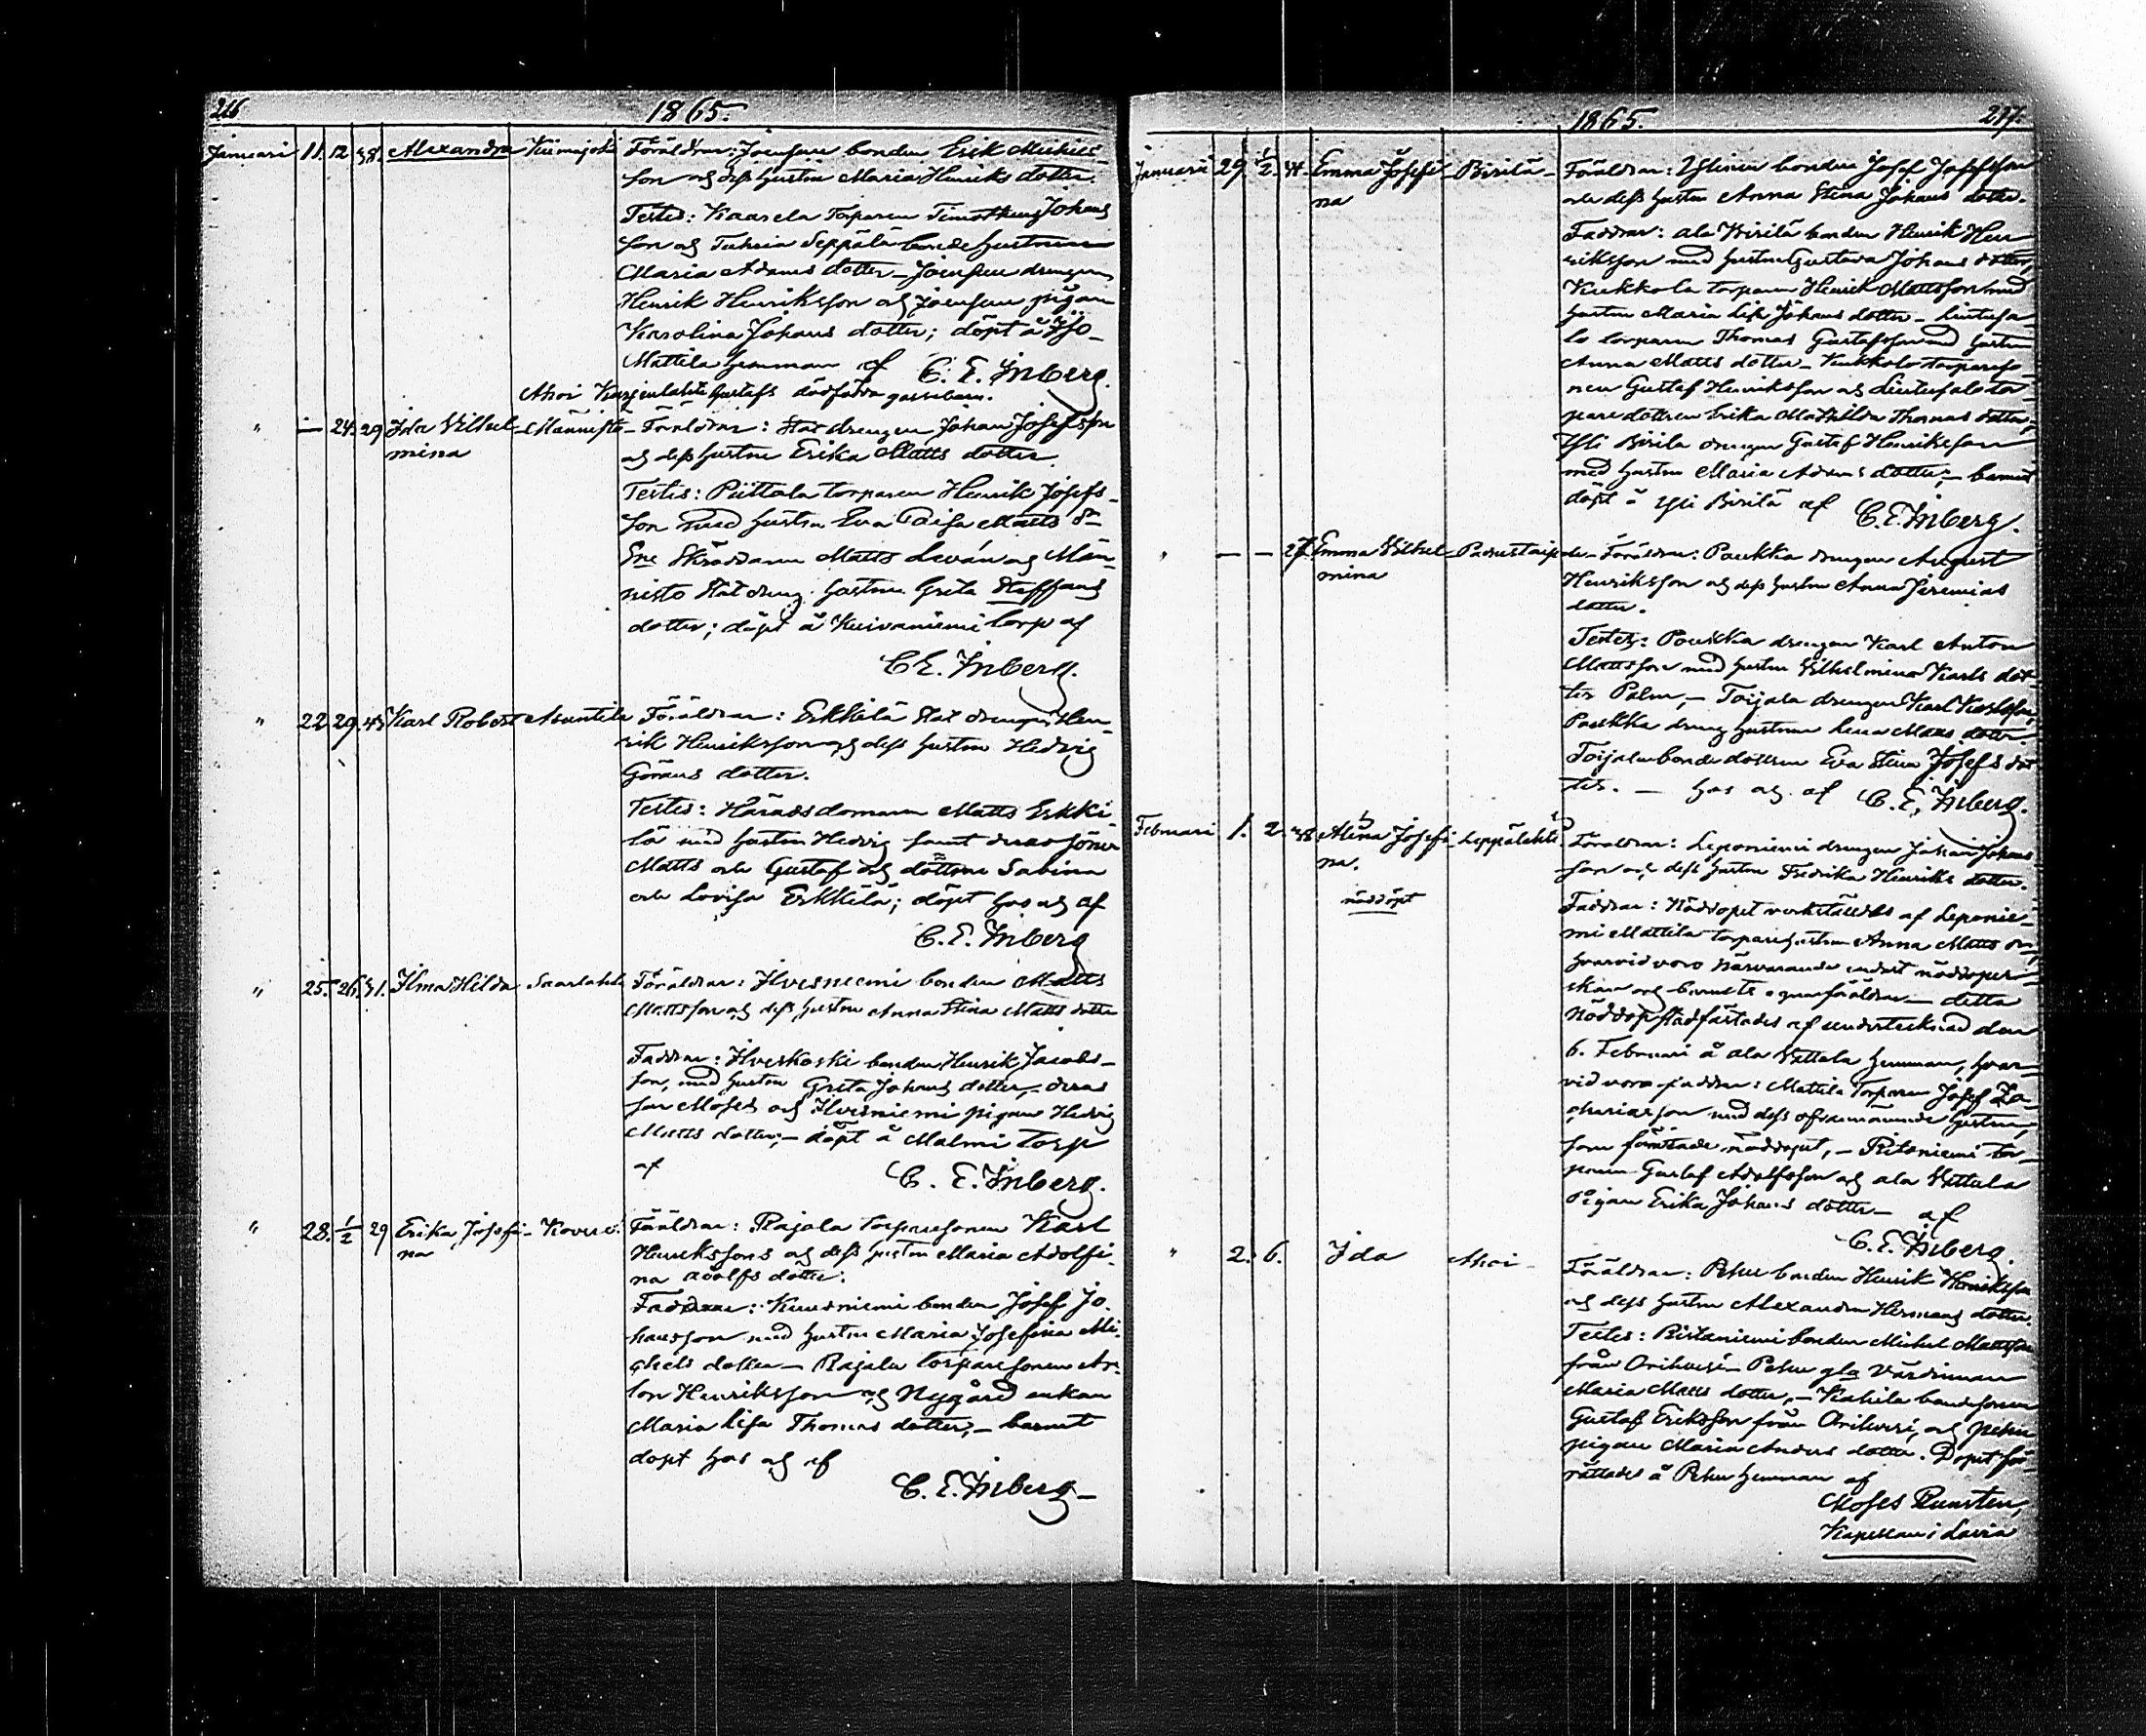 216
1865.
Januari 11. 12 38. Alexandra Kiimajoki Föräldrar: Joensuu bonden Erik Michels
son och dess hustru Maria Henriks dotter.
Testes: Kaarela Torparen Timotheus Johans
son och Tuhria Seppälä bonde hustrun
Maria Adams dotter – Joensuu drengen
Henrik Henriksson och Joensuu pigan
Karolina Johans dotter; döpt å Yjö
Mattila hemman af C. E. Inberg.
Ahoi Gustafs dödfödda gossebarn.
" — 24. 29 Ida Vilhel- Männistö – Föräldrar: Stat drengen Johan Josefsson
mina och dess hustru Erika Matts dotter
Testes: Püttala torparen Henrik Josefs-
son med hustru Eva Caisa Matts dr
Sne Skräddaren Matts Leván och Män-
nisto Statdreng hustrun Greta Staffans
dotter; döpt å Kuivaniemi torp af
C E. Inberg.
" 22. 29. 43 Karl Robert Asuntila Föräldrar: Erkkilä Stat drengen Hen-
rik Henriksson och dess hustru Hedvig
Görans dotter.
Testes: Häradsdomaren Matts Erkki-
lä med hustru Hedvig samt deras söner
Matts och Gustaf och döttrar Sabina
och Lovisa Erkkilä; döpt hos ag af
C. E. Inberg
" 25. 26. 31. Ilma Hilda Saarlahti Föräldrar: Ilvesniemi bonden Matts
Mattsson och dess hustru Anna Stina Matts dotter
Faddrar: Ilveskoski bonden Henrik Jacobs-
son, med hustru Greta Johans dotter, – deras
son Moses och Ilvesniemi pigan Hedvig
Matts dotter; – döpt å Malmi torp
af C. E. Inberg.
" 28. 1/2 29 Erika Josefi- Kovesi Föräldrar: Rajala torparesonen Karl
na Henrikssons och dess hustru Maria Adolfi-
na Adolfs dotter.
Faddrar: Kuusniemi bonden Josef Jo-
hansson med hustru Maria Josefina Mi-
chels dotter – Rajala torparesonen An-
ton Henriksson och Nygård enkan
Maria Lisa Thomas dotter, – barnet
döpt hos ag af
C. E. Inberg –
1865.
217.
Januari 29. 1/2. 44. Emma Josefi- Birilä – Föräldrar: Yliren bonden Josef Josefsson
na och dess hustru Anna Stina Johans dotter.
Faddrar: Ala Birilä bonden Henrik Hen-
riksson med hustru Gustava Johans dotter,
Kukkola torparen Henrik Mattsson med
hustru Maria Lisa Johans dotter –
torparen Thomas Gustafsson med hustru
Anna Matts dotter – Kukkola torpareso-
nen Gustaf Henriksson och tor-
pare dottren Erika Mathilda Thomas dotter,
Yli Birilä drengen Gustaf Henriksson
med hustru Maria Adams dotter; – barnet
döpt å Yli Birilä af C. E. Inberg.
" — — 27. Emma Vilhel- Padustaipale – Föräldrar: Paukka drengen August
mina Henriksson och dess hustru Anna Jeremias
dotter.
Testes: Paukka drengen Karl Anton
Mattsson med hustru Vilhelmina Karls dot-
ter Palm, – Toijala drengen Karl Karlsson,
Paukka dreng hustrun Lena Matts dotter
Toijala bonde dottren Eva Stina Josefs dot-
ter. – hos ag. af C. E. Inberg.
Februari 1. 2. 38 Alina Josefi- Leppälahti Föräldrar: Leponiemi drengen Johan Johans
na. son och dess hustru Fredrika Henriks dotter.
nöddöpt
Faddrar: Nöddopet verkstäldes af Leponie-
mi Mattila torpare hustrun Anna Matts dr,
hvarvid voro närvarande endast nöddoper-
skan och barnets egna föräldrar – detta
Nöddop stadfästades af undertecknad den
6. Februari å Ala Vättala hemman, hvar-
vid voro faddrar: Mattila Torparen Josef Za-
chariasson med dess ofvannämnde hustru,
som förrättade nöddopet, – Ritoniemi tor-
paren Gustaf Adolfsson och Ala Vättala
pigan Erika Johans dotter – af
C. E. Inberg
" 2. 6. Ida Ahoi – Föräldrar: Pehu bonden Henrik Henriksson
och dess hustru Alexandra Hermans dotter.
Testes: Ristaniemi bonden Michel Mattsson
från Orihvesi – Pehu gla värdinnan
Maria Matts dotter, – Kahila bondesonen
Gustaf Eriksson från Orihvesi, och Pehu
pigan Maria Anders dotter. Dopet för-
rättades å Pehu hemman af
Moses Runsten,
Kapellan i Lavia